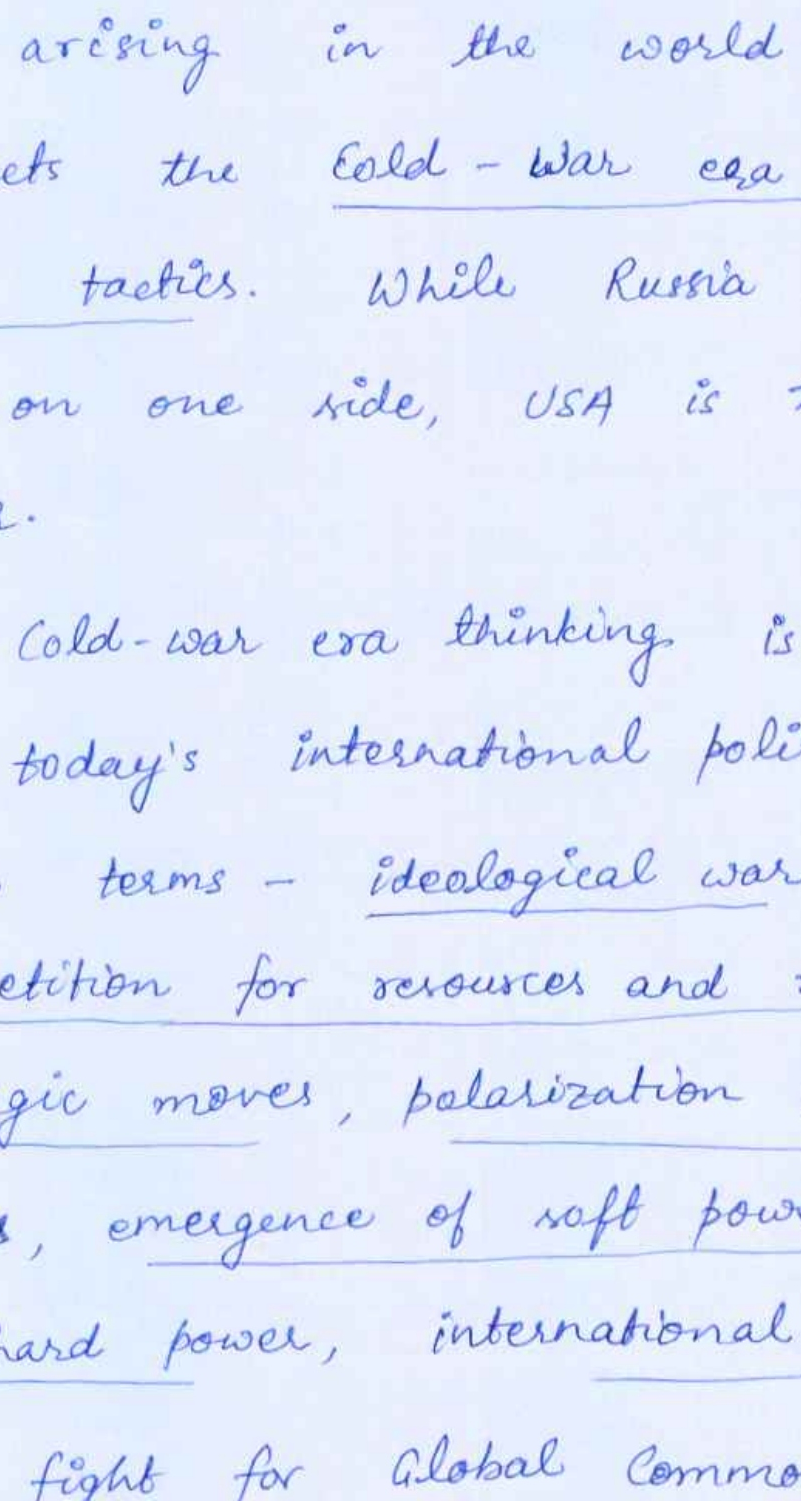 arising in the world
ets the Cold - War era
tactics. While Russia
on one side, USA is
.
Cold-war era thinking is
today's international poli
terms - ideological war
etition for resources and
gic moves, polarization
s, emergence of soft pow
hard power, international
fight for Global Commo